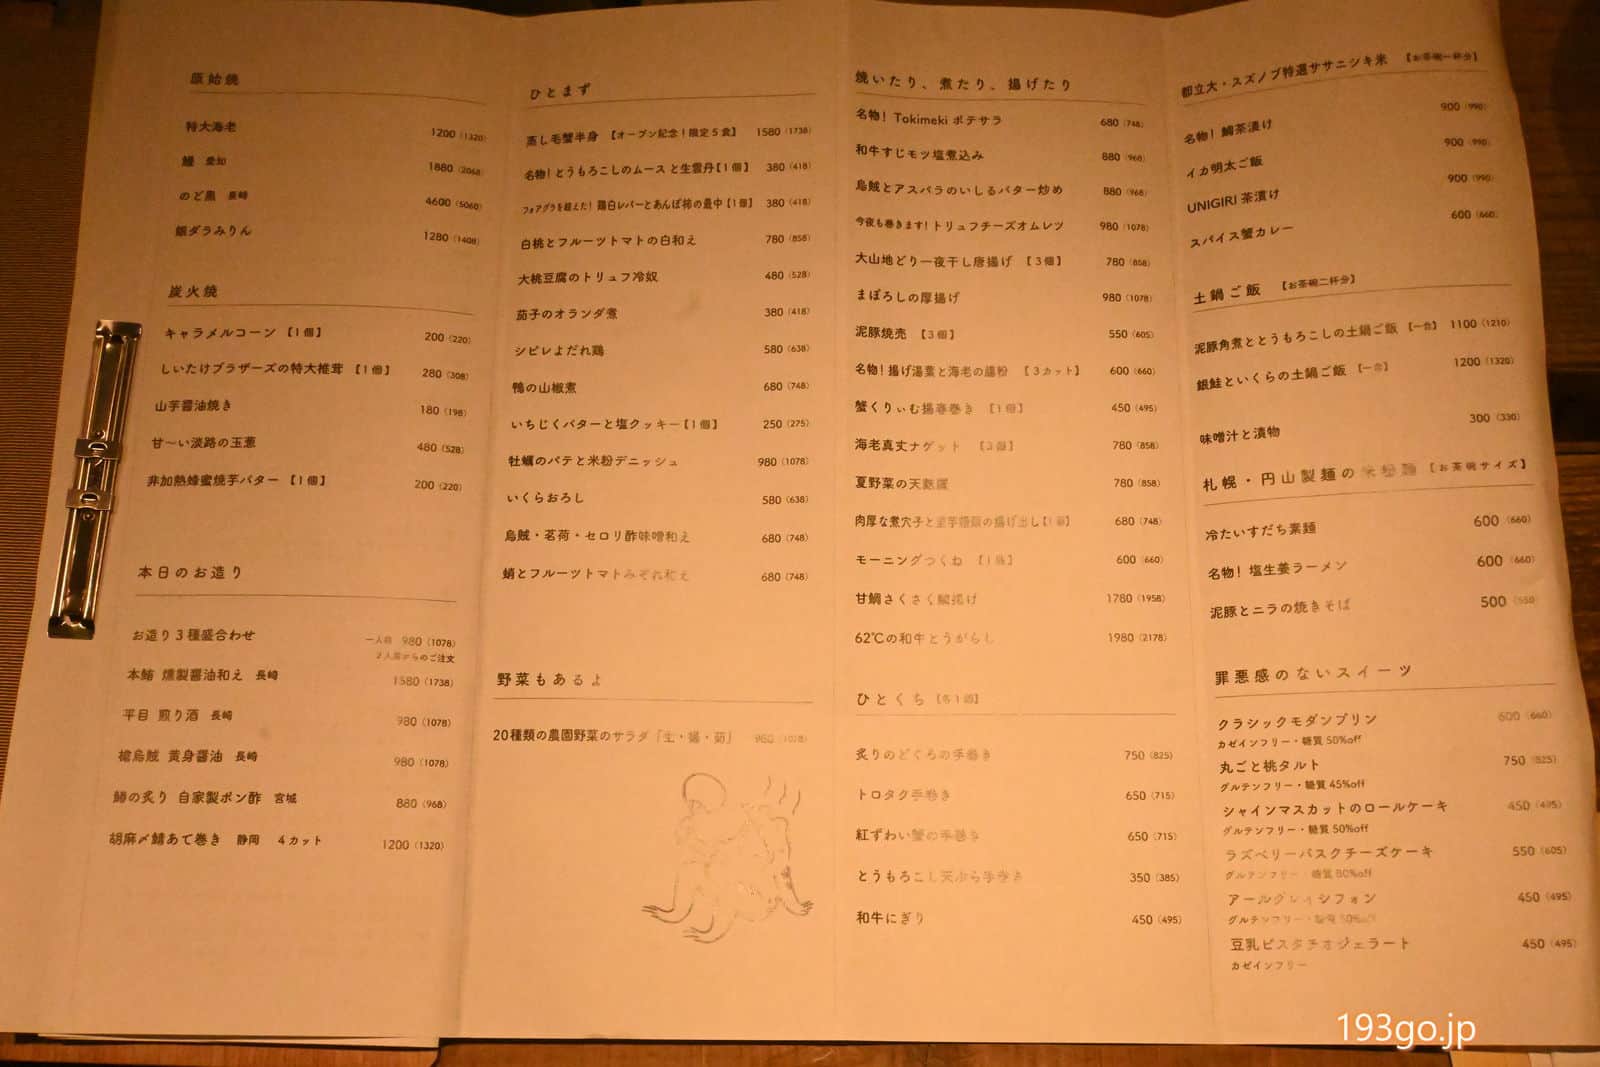 原始焼
特大海老 1200 (1320)
鰻 愛知 1880 (2068)
のど黒 長崎 4600 (5060)
銀ダラみりん 1280 (1408)
炭火焼
キャラメルコーン 【1個】 200 (220)
しいたけブラザーズの特大椎茸 【1個】 280 (308)
山芋醤油焼き 180 (198)
甘〜い淡路の玉葱 480 (528)
非加熱蜂蜜焼芋バター 【1個】 200 (220)
本日のお造り
お造り3種盛合わせ 一人前 980 (1078)
2人前からのご注文
本鮪 燻製醤油和え 長崎 1580 (1738)
平目 煎り酒 長崎 980 (1078)
槍烏賊 黄身醤油 長崎 980 (1078)
鰆の炙り 自家製ポン酢 宮城 880 (968)
胡麻〆鯖あて巻き 静岡 4カット 1200 (1320)
ひとまず
蒸し毛蟹半身 【オープン記念!限定5食】 1580 (1738)
名物!とうもろこしのムースと生雲丹【1個】 380 (418)
フォアグラを超えた!鶏白レバーとあんぽ柿の最中【1個】 380 (418)
白桃とフルーツトマトの白和え 780 (858)
大桃豆腐のトリュフ冷奴 480 (528)
茄子のオランダ煮 380 (418)
シビレよだれ鶏 580 (638)
鴨の山椒煮 680 (748)
いちじくバターと塩クッキー【1個】 250 (275)
牡蠣のパテと米粉デニッシュ 980 (1078)
いくらおろし 580 (638)
烏賊・茗荷・セロリ酢味噌和え 680 (748)
蛸とフルーツトマトみぞれ和え 680 (748)
野菜もあるよ
20種類の農園野菜のサラダ「生・揚・茹」 980 (1078)
焼いたり、煮たり、揚げたり
名物! Tokimeki ポテサラ 680 (748)
和牛すじモツ塩煮込み 880 (968)
烏賊とアスパラのいしるバター炒め 880 (968)
今夜も巻きます!トリュフチーズオムレツ 980 (1078)
大山地どり一夜干し唐揚げ 【3個】 780 (858)
まぼろしの厚揚げ 980 (1078)
泥豚焼売 【3個】 550 (605)
名物!揚げ湯葉と海老の腸粉 【3カット】 600 (660)
蟹くりぃむ揚春巻き 【1個】 450 (495)
海老真丈ナゲット 【3個】 780 (858)
夏野菜の天麩羅 780 (858)
肉厚な煮穴子と里芋饅頭の揚げ出し【1個】 680 (748)
モーニングつくね 【1個】 600 (660)
甘鯛さくさく鱗揚げ 1780 (1958)
62℃の和牛とうがらし 1980 (2178)
ひとくち 【各1個】
炙りのどぐろの手巻き 750 (825)
トロタク手巻き 650 (715)
紅ずわい蟹の手巻き 650 (715)
とうもろこし天ぷら手巻き 350 (385)
和牛にぎり 450 (495)
都立大・スズノブ特選ササニシキ米 【お茶碗一杯分】
名物!鯛茶漬け 900 (990)
イカ明太ご飯 900 (990)
UNIGIRI 茶漬け 900 (990)
スパイス蟹カレー 600 (660)
土鍋ご飯 【お茶碗二杯分】
泥豚角煮ととうもろこしの土鍋ご飯 【一合】 1100 (1210)
銀鮭といくらの土鍋ご飯 【一合】 1200 (1320)
味噌汁と漬物 300 (330)
札幌・円山製麺の米粉麺 【お茶碗サイズ】
冷たいすだち素麺 600 (660)
名物!塩生姜ラーメン 600 (660)
泥豚とニラの焼きそば 500 (550)
罪悪感のないスイーツ
クラシックモダンプリン 600 (660)
カゼインフリー・糖質50%off
丸ごと桃タルト 750 (825)
グルテンフリー・糖質45%off
シャインマスカットのロールケーキ 450 (495)
グルテンフリー・糖質50%off
ラズベリーバスクチーズケーキ 550 (605)
グルテンフリー・糖質80%off
アールグレイシフォン 450 (495)
グルテンフリー・糖質50%off
豆乳ピスタチオジェラート 450 (495)
カゼインフリー
193go.jp